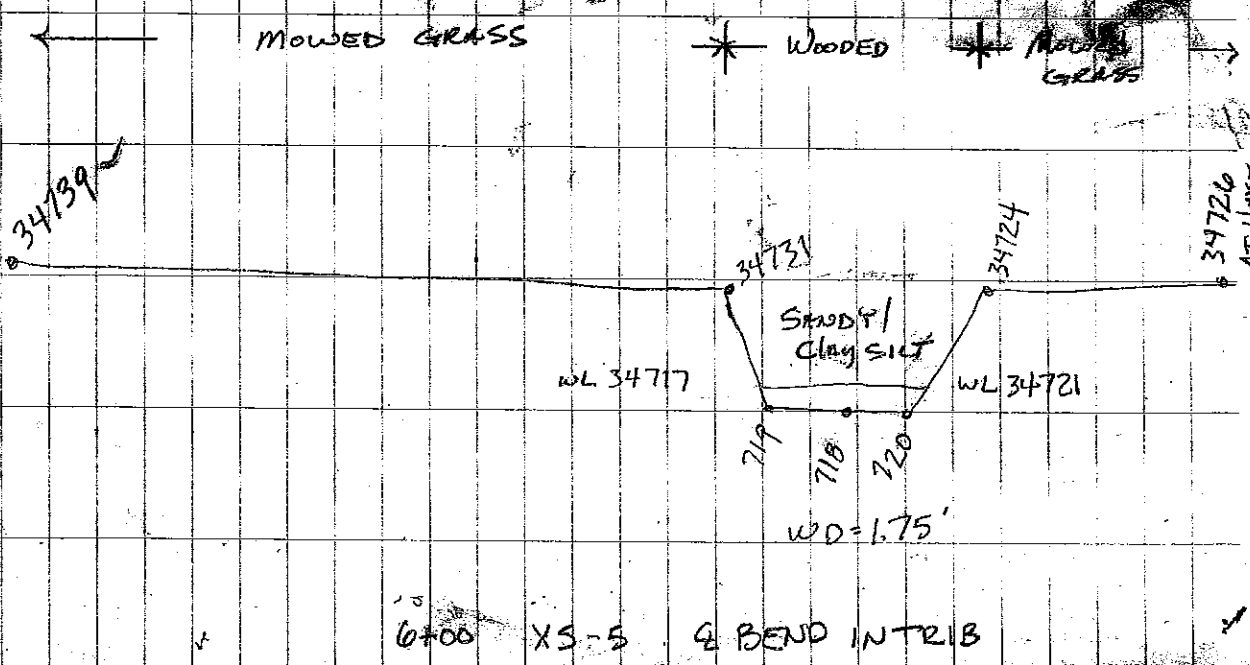 MOWED GRASS
WOODED
MOWED
GRASS
34739
34731
34724
34726
SANDY/
Clay SILT
WL 34717
WL 34721
719
718
720
WD=1.75'
6+00 XS-5 BEND IN TRIB